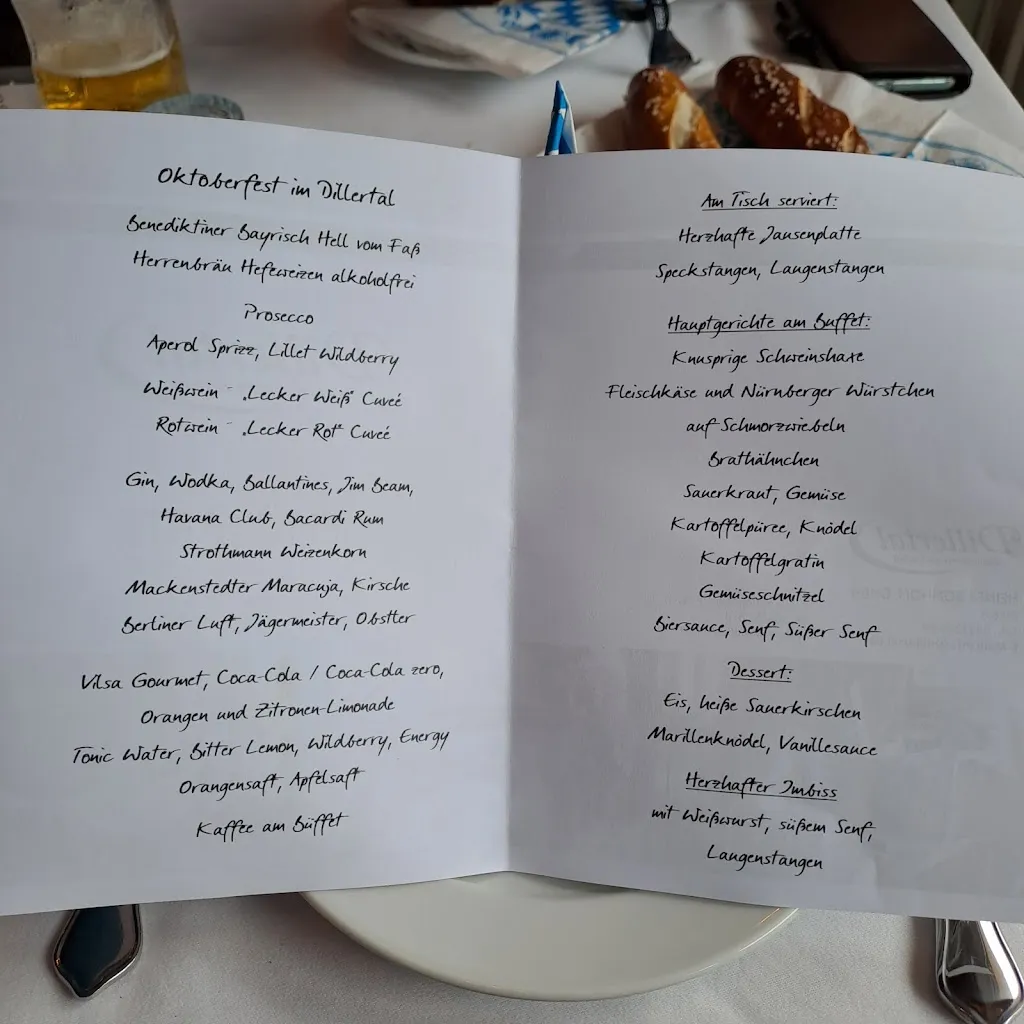 Oktoberfest im Dillertal
Benediktiner Bayrisch Hell vom Faß
Herrenbräu Hefeweizen alkoholfrei
Prosecco
Aperol Sprizz, Lillet Wildberry
Weißwein - „Lecker Weiß“ Cuveé
Rotwein - „Lecker Rot“ Cuveé
Gin, Wodka, Ballantines, Jim Beam,
Havana Club, Bacardi Rum
Strothmann Weizenkorn
Mackenstedter Maracuja, Kirsche
Berliner Luft, Jägermeister, Obstler
Vilsa Gourmet, Coca-Cola / Coca-Cola zero,
Orangen und Zitronen-Limonade
Tonic Water, Bitter Lemon, Wildberry, Energy
Orangensaft, Apfelsaft
Kaffee am Büffet
Am Tisch serviert:
Herzhafte Jausenplatte
Speckstangen, Laugenstangen
Hauptgerichte am Buffet:
Knusprige Schweinshaxe
Fleischkäse und Nürnberger Würstchen
auf Schmorzwiebeln
Brathähnchen
Sauerkraut, Gemüse
Kartoffelpüree, Knödel
Kartoffelgratin
Gemüseschnitzel
Biersauce, Senf, Süßer Senf
Dessert:
Eis, heiße Sauerkirschen
Marillenknödel, Vanillesauce
Herzhafter Imbiss
mit Weißwurst, süßem Senf,
Laugenstangen
Dillertal